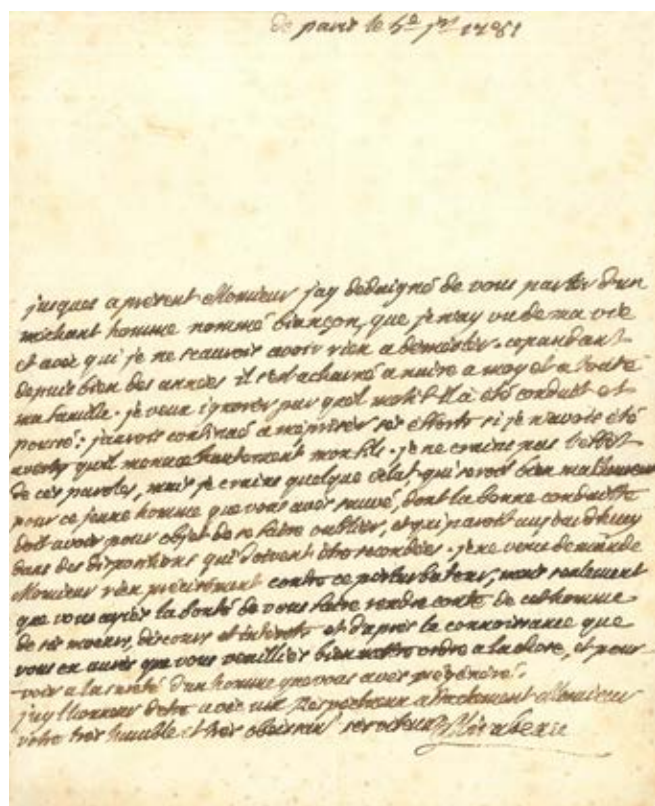 de paris le 5e jer 1781
jusques a present Monsieur j'ay dedaigné de vous parler d'un
méchant homme nommé biançon, que je n'ay vu de ma vie
et avec qui je ne scaurois avoir rien a demesler. cependant
depuis bien des années il s'est acharné a nuire a moy et a toute
ma famille. je veux ignorer par quel motif il a été conduit et
poussé: j'aurois continué a mepriser ses efforts si je n'avois été
averty qu'il menace hautement mon fils. je ne crains pas l'effet
de ces paroles, mais je crains quelque éclat, qui seroit bien malheureux
pour ce jeune homme que vous avez sauvé, dont la bonne conduitte
doit avoir pour objet de se faire oublier, et qui paroit aujourd'huy
dans des dispositions qui doivent etre secondées. je ne vous demande
Monsieur rien precisement contre ce perturbateur, mais seulement
que vous ayiés la bonté de vous faire rendre conte de cet homme
de ses moeurs, discours et interets et d'apres la connoissance que
vous en aurés que vous veuilliés bien mettre ordre a la chose, et pour
voir a la sureté d'un homme que vous avez
j'ay l'honneur d'etre avec un respectueux attachement Monsieur
votre tres humble et tres obeissant serviteur Mirabeau